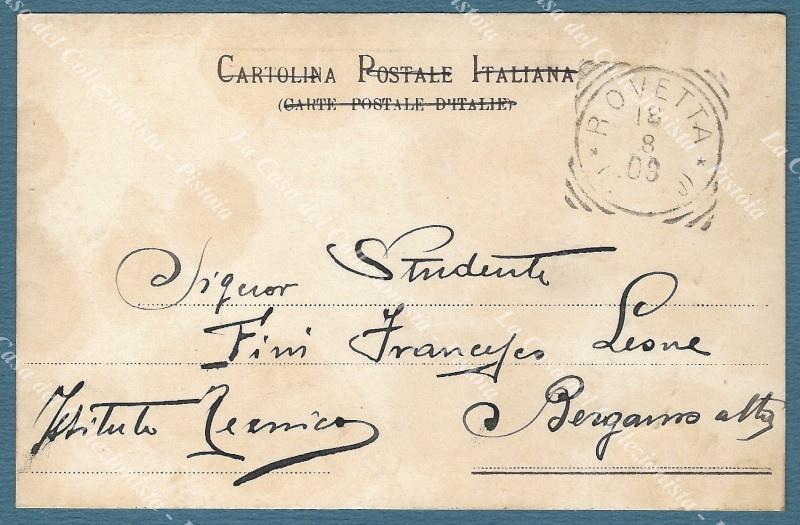 CARTOLINA POSTALE ITALIANA
(CARTE POSTALE D'ITALIE)
ROVETTA
18
8
03
Signor Studente
Fini Francesco Leone
Istituto Tecnico
Bergamo alta
La Casa del Collezionista - Pistoia